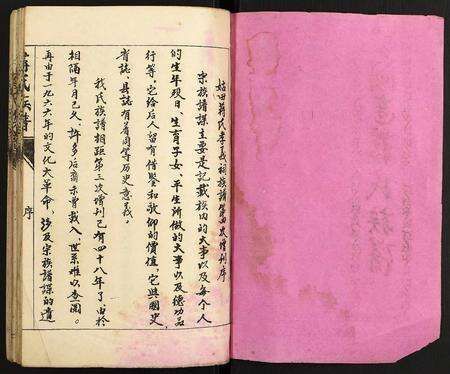 姑田蒋氏孝义祠族谱第四次增刊序
宗族谱牒主要是记载族内的大事以及每个人
的生年殁日、生育子女、平生所做的大事以及德功品
行等,它给后人留有借鉴和敬仰的价值,它与国史、
省志、县志有着同等历史意义。
我氏族谱相距第三次增刊已有四十八年了,由於
相隔年月已久,许多后裔未曾载入,世系难以查阅。
再由于一九六六年的文化大革命,涉及宗族谱牒的遗
蒋氏族谱
序